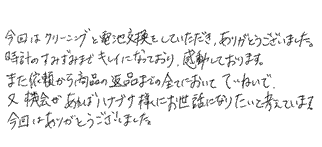 今回はクリーニングと電池交換をしていただき、ありがとうございました。
時計のすみずみまでキレイになっており、感動しております。
また依頼から商品の返品までの全てにおいてていねいで、
又機会があればいけづけ様にお世話になりたいと考えています。
今回はありがとうございました。